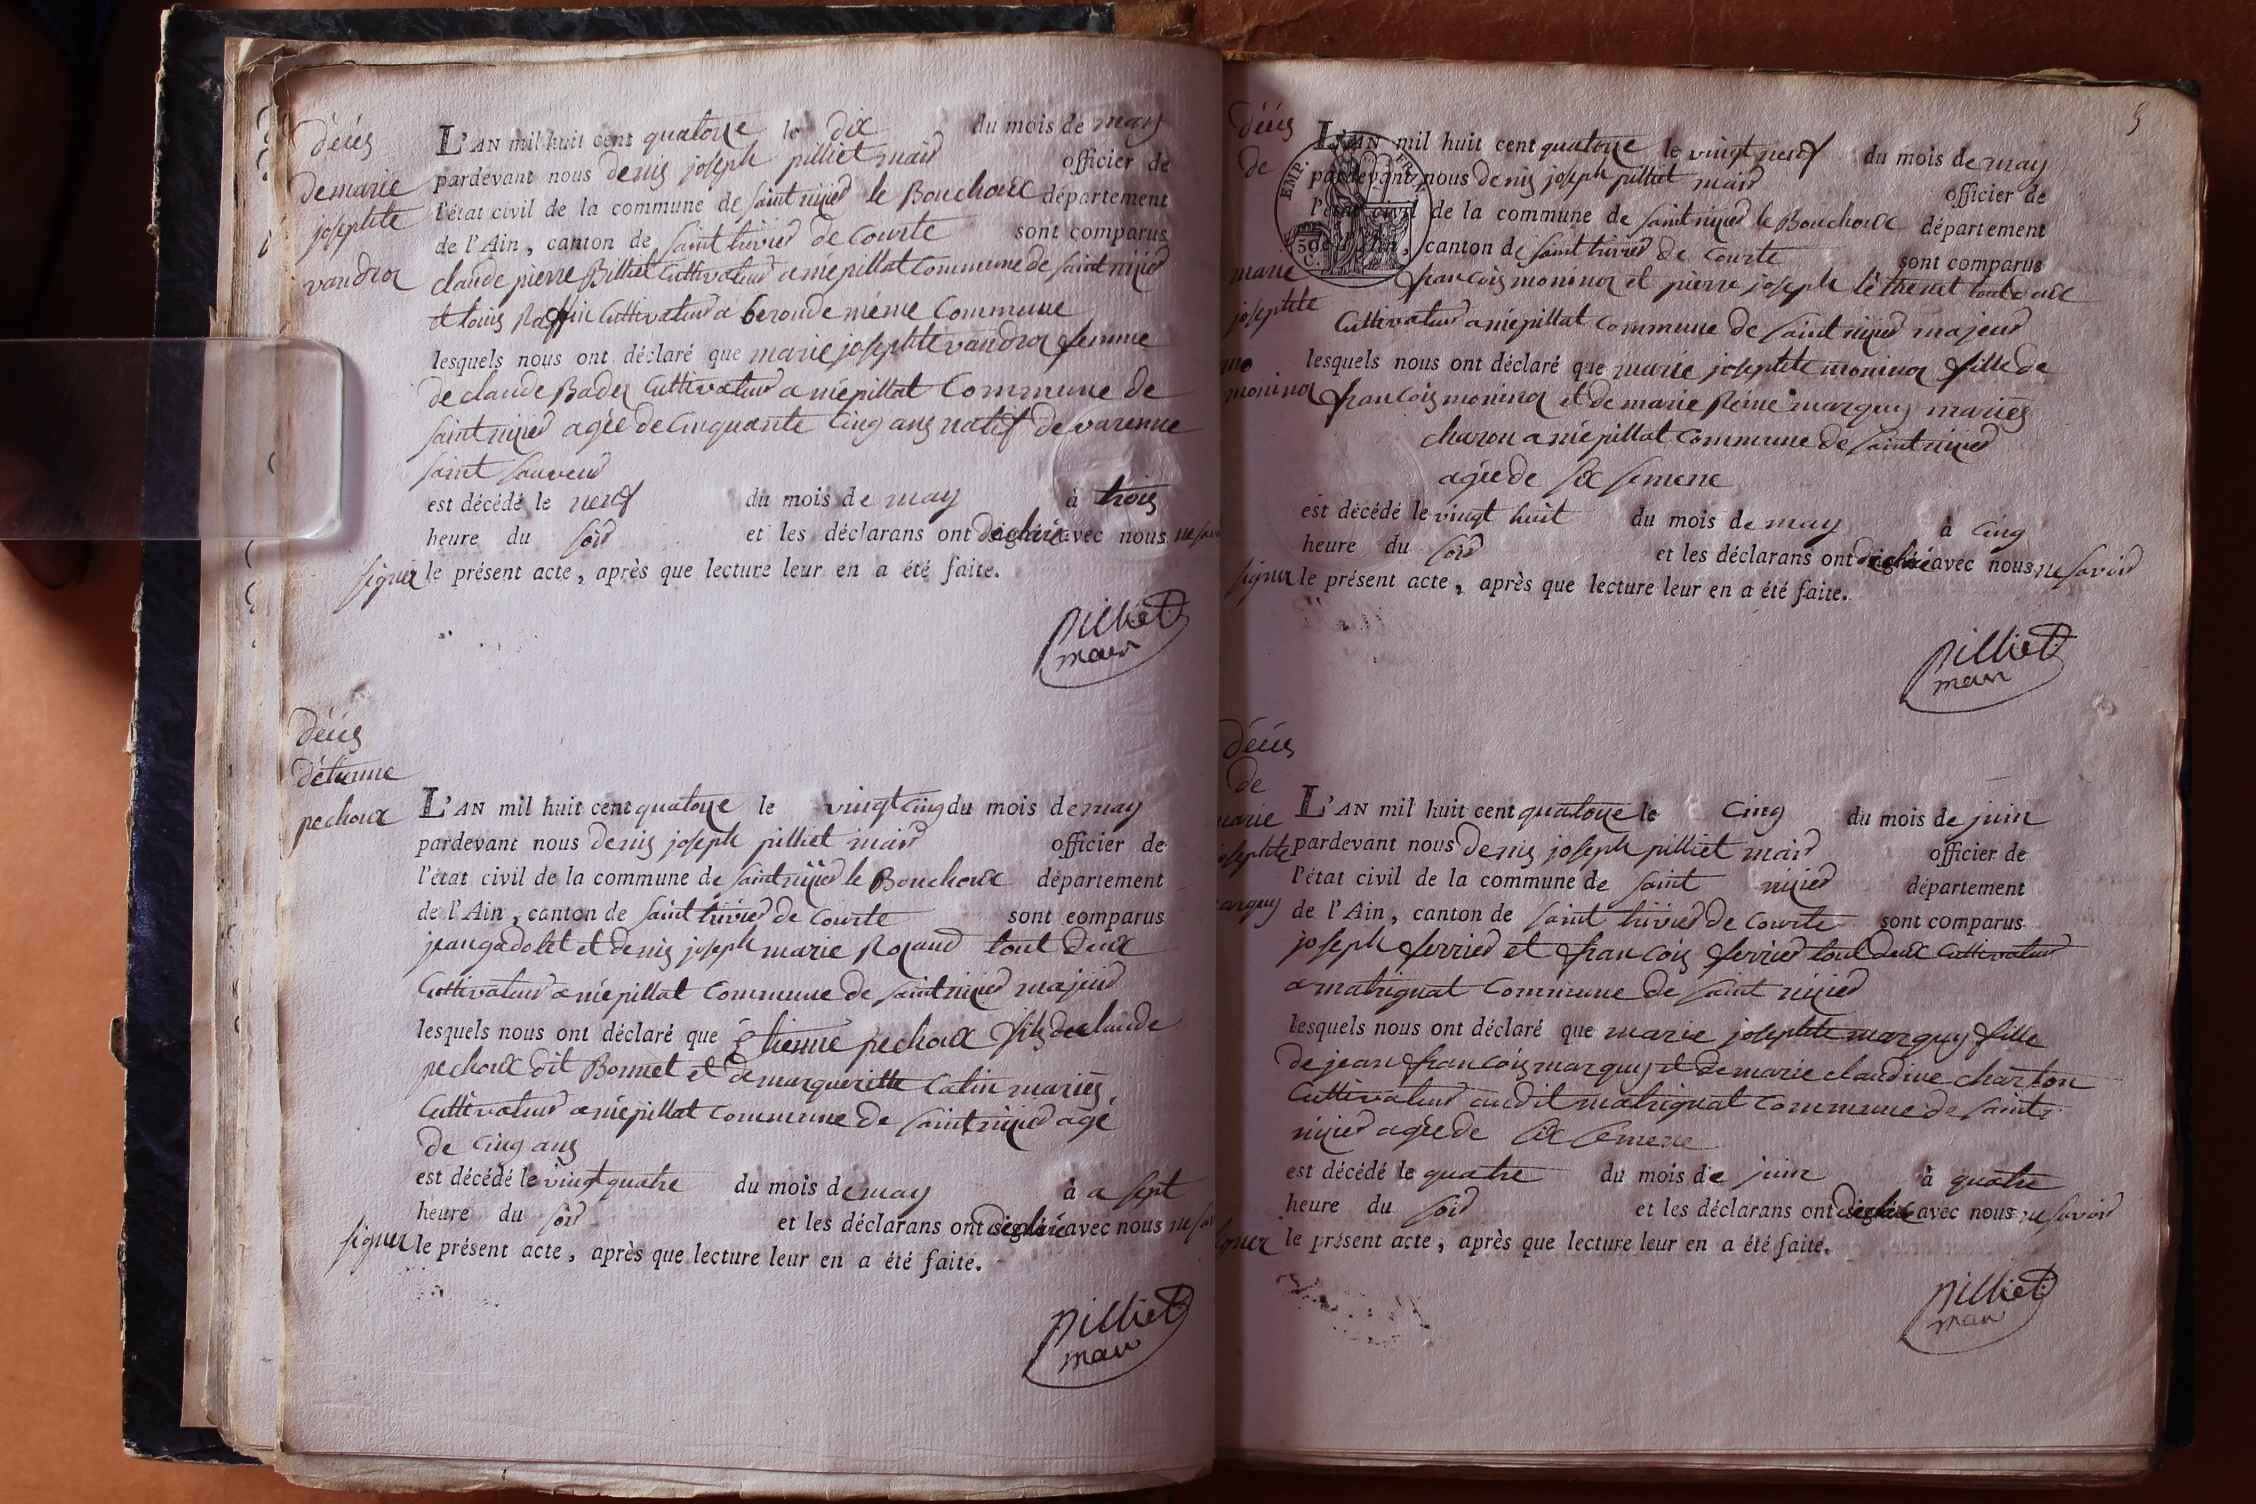 décés
de marie
josephte
vandroz
L'AN mil huit cent quatorze le dix du mois de may
pardevant nous denis joseph pilliet mair officier de
l'état civil de la commune de saint nizier le Bouchoux département
de l'Ain, canton de saint trivier de Courte sont comparus
claude pierre Billiet Cultivateur a niépillat Commune de saint nizier
et louis Raffin Cultivateur a beronde méme Commune
lesquels nous ont déclaré que marie josephte vandroz femme
de claude Badez Cultivateur a niépillat Commune de
saint nizier agée de Cinquante Cinq ans natif de varenne
saint sauveur
est décédé le neuf du mois de may à trois
heure du soir et les déclarans ont déclaré avec nous ne savoir
signer le présent acte, après que lecture leur en a été faite.
pilliet
mair
décés
d'étienne
pechoux
L'AN mil huit cent quatorze le vingt cinq du mois de may
pardevant nous denis joseph pilliet mair officier de
l'état civil de la commune de saint nizier le Bouchoux département
de l'Ain, canton de saint trivier de Courte sont comparus
jean gadolet et denis joseph marie Rozand tout deux
Cultivateur a niépillat Commune de saint nizier majeur
lesquels nous ont déclaré que étienne pechoux fils de claude
pechoux dit Bonnet et de marguerite Catin mariés
Cultivateur a niépillat commune de saint nizier agé
de cinq ans
est décédé le vingt quatre du mois de may à a sept
heure du soir et les déclarans ont déclaré avec nous ne sa
signer le présent acte, après que lecture leur en a été faite.
pilliet
mair
5
décés
de
marie
josephte
moninoz
EMP. FRAN.
50 C.
L'AN mil huit cent quatorze le vingt neuf du mois de may
pardevant nous denis joseph pilliet mair officier de
l'état civil de la commune de saint nizier le Bouchoux département
de l'Ain, canton de saint trivier de Courte sont comparus
francois moninoz et pierre joseph tout deux
Cultivateur a niépillat commune de saint nizier majeur
lesquels nous ont déclaré que marie josephte moninoz fille de
francois moninoz et de marie Reine marguy mariés
charon a niépillat commune de saint nizier
agée de six semene
est décédé le vingt huit du mois de may à cinq
heure du soir et les déclarans ont déclaré avec nous ne savoir
signer le présent acte, après que lecture leur en a été faite.
pilliet
mair
décés
de
marie
josephte
marguy
L'AN mil huit cent quatorze le Cinq du mois de juin
pardevant nous denis joseph pilliet mair officier de
l'état civil de la commune de saint nizier département
de l'Ain, canton de saint trivier de Courte sont comparus
joseph ferrier et francois ferrier tout deux Cultivateur
a matrignat Commune de saint nizier
lesquels nous ont déclaré que marie josephte marguy fille
de jean francois marguy et de marie claudine charton
Cultivateur audit matrignat Commune de saint
nizier agée de six semene
est décédé le quatre du mois de juin à quatre
heure du soir et les déclarans ont déclaré avec nous ne savoir
signer le présent acte, après que lecture leur en a été faite.
pilliet
mair